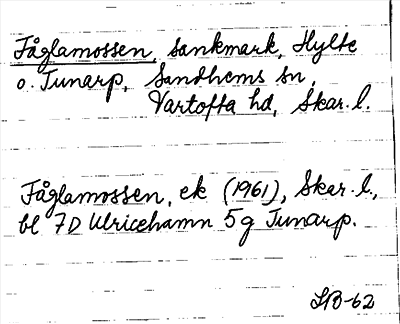 Fåglamossen, sankmark, Hylte
o. Tunarp, Sandhems sn,
Vartofta hd, Skar. l.
Fåglamossen, ek (1961), Skar. l.,
bl 7D Ulricehamn 5g Tunarp.
SB-62